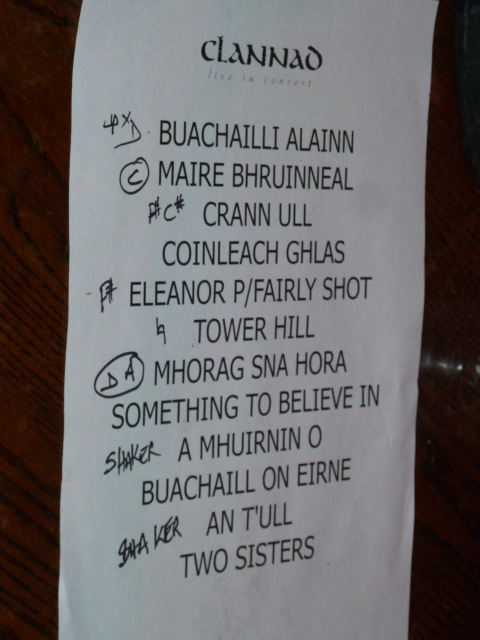 CLANNAD
live in concert
4xD BUACHAILLI ALAINN
C MAIRE BHRUINNEAL
F# C# CRANN ULL
COINLEACH GHLAS
F# ELEANOR P/FAIRLY SHOT
♮ TOWER HILL
DA MHORAG SNA HORA
SOMETHING TO BELIEVE IN
SHAKER A MHUIRNIN O
BUACHAILL ON EIRNE
SHAKER AN T'ULL
TWO SISTERS